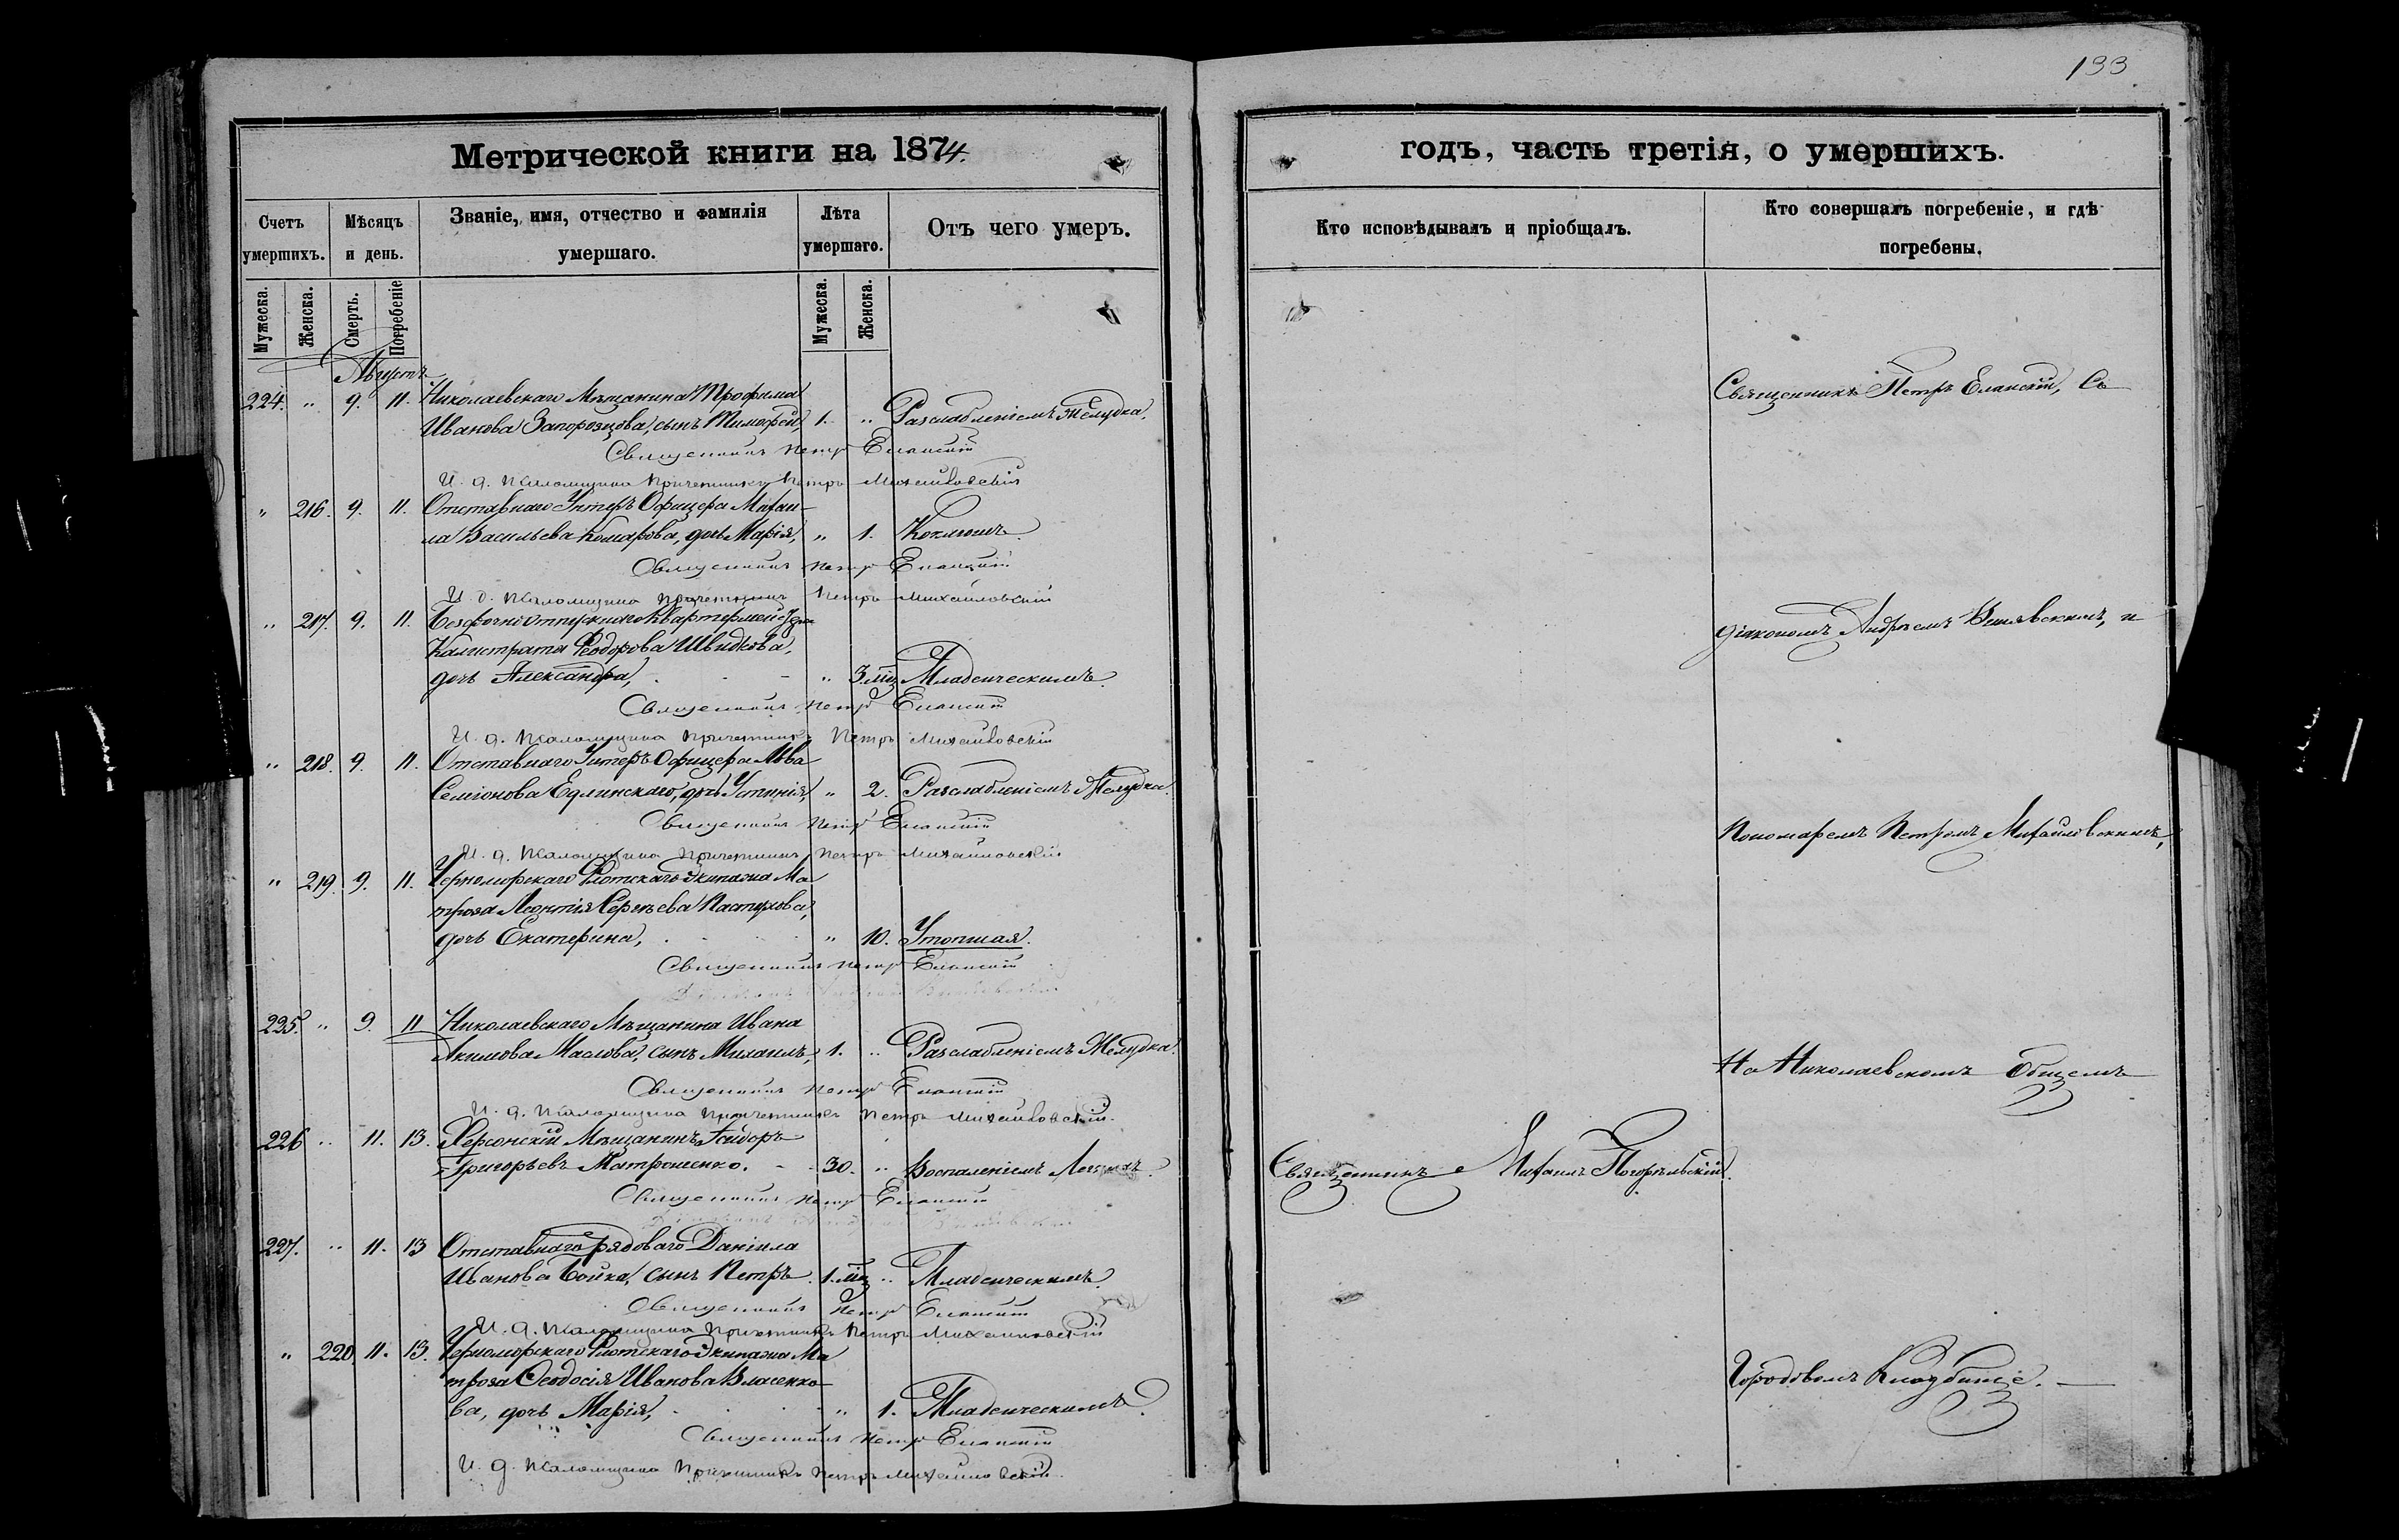 133
Метрической книги на 1874.
годъ, часть третія, о умершихъ.
Счетъ умершихъ.
Мѣсяцъ и день.
Званіе, имя, отчество и фамилія умершаго.
Лѣта умершаго.
Отъ чего умеръ.
Кто исповѣдывалъ и пріобщалъ.
Кто совершалъ погребеніе, и гдѣ погребены.
Мужеска.
Женска.
Смерть.
Погребеніе
Мужеска.
Женска.
Августъ
224. " 9. 11. Николаевскаго Мѣщанина Трофима
Иванова Запорозцова, сынъ Тимофей, 1. " Разслабленіемъ желудка.
Священникъ Петръ Еланскій
И. д. Псаломщика Причетникъ Петръ Михайловскій
" 216. 9. 11. Отставнаго Унтеръ Офицера Михаи-
ла Васильева Комарова, дочь Марія, " 1. Коклюшъ.
Священникъ Петръ Еланскій
И. д. Псаломщика Причетникъ Петръ Михайловскій
" 217. 9. 11. Безсрочно отпускнаго Квартермейстра
Калистрата Феодорова Швидкова,
дочь Александра, " 3 мѣц. Младенческимъ.
Священникъ Петръ Еланскій
И. д. Псаломщика Причетникъ Петръ Михайловскій
" 218. 9. 11. Отставнаго Унтеръ Офицера Льва
Семіонова Едлинскаго, дочь Устинія, " 2. Разслабленіемъ Желудка.
Священникъ Петръ Еланскій
И. д. Псаломщика Причетникъ Петръ Михайловскій
" 219. 9. 11. Черноморскаго Флотскаго Экипажа Ма
троза Леонтія Сергѣева Пастухова,
дочь Екатерина, " 10. Утопшая.
Священникъ Петръ Еланскій
225. " 9. 11 Николаевскаго Мѣщанина Ивана
Акимова Маслова, сынъ Михаилъ, 1. " Разслабленіемъ Желудка.
Священникъ Петръ Еланскій
И. д. Псаломщика Причетникъ Петръ Михайловскій.
226 " 11. 13. Херсонскій Мѣщанинъ Исидоръ
Григорьевъ Матрошенко. 30. " Воспаленіемъ Легкихъ.
Священникъ Петръ Еланскій
227. " 11. 13 Отставнаго рядоваго Даніила
Иванова Бойка, сынъ Петръ 1. мѣц " Младенческимъ.
Священникъ Петръ Еланскій
И. д. Псаломщика Причетникъ Петръ Михайловскій
" 220 11. 13. Черноморскаго Флотскаго Экипажа Ма
троза Феодосія Иванова Власенко-
ва, дочь Марія, " 1. Младенческимъ.
Священникъ Петръ Еланскій
И. д. Псаломщика Причетникъ Петръ Михайловскій.
Священникъ Михаилъ Погорѣльскій.
Священникъ Петръ Еланскій, Съ
діакономъ Андреемъ и
Пономаремъ Петромъ Михайловскимъ,
На Николаевскомъ Общемъ
Городовомъ Кладбищѣ.